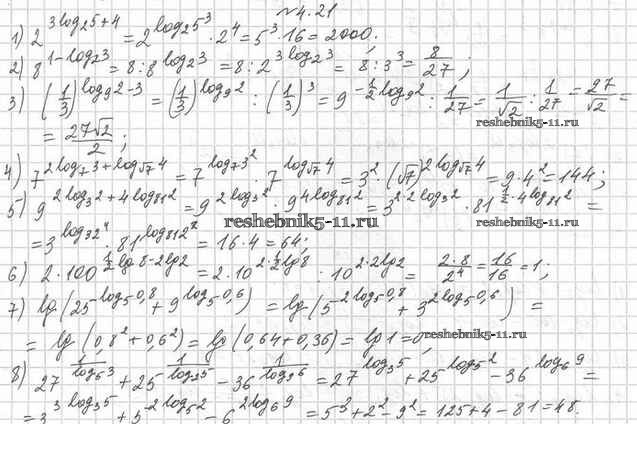 №4.21
1) 2^{3log_2 5+4} = 2^{log_2 5^3} · 2^4 = 5^3 · 16 = 2000;
2) 8^{1-log_2 3} = 8 : 8^{log_2 3} = 8 : 2^{3log_2 3} = 8 : 3^3 = 8/27;
3) (1/3)^{log_9 2-3} = (1/3)^{log_9 2} : (1/3)^3 = 9^{-1/2 log_9 2} : 1/27 = 1/√2 : 1/27 = 27/√2 =
reshebnik5-11.ru
= 27√2/2;
4) 7^{2log_7 3+log_{√7} 4} = 7^{log_7 3^2} · 7^{log_{√7} 4} = 3^2 · (√7)^{2log_{√7} 4} = 9 · 4^2 = 144;
5) 9^{2log_3 2+4log_{81} 2} = 9^{2log_3 2} · 9^{4log_{81} 2} = 3^{2·2log_3 2} · 81^{1/2·4log_{81} 2} =
reshebnik5-11.ru
= 3^{log_3 2^4} · 81^{log_{81} 2^2} = 16 · 4 = 64;
6) 2 · 100^{1/2 lg 8-2lg2} = 2 · 10^{2·1/2 lg 8} : 10^{2·2lg2} = 2·8/2^4 = 16/16 = 1;
7) lg(25^{-log_5 0,8} + 9^{log_5 0,6}) = lg(5^{-2log_5 0,8} + 3^{2log_5 0,6}) =
= lg(0,8^2 + 0,6^2) = lg(0,64 + 0,36) = lg 1 = 0;
reshebnik5-11.ru
8) 27^{1/log_6 3} + 25^{1/log_2 5} - 36^{1/log_9 6} = 27^{log_3 5} + 25^{log_5 2} - 36^{log_6 9} =
= 3^{3log_3 5} + 5^{2log_5 2} - 6^{2log_6 9} = 5^3 + 2^2 - 9^2 = 125 + 4 - 81 = 48.